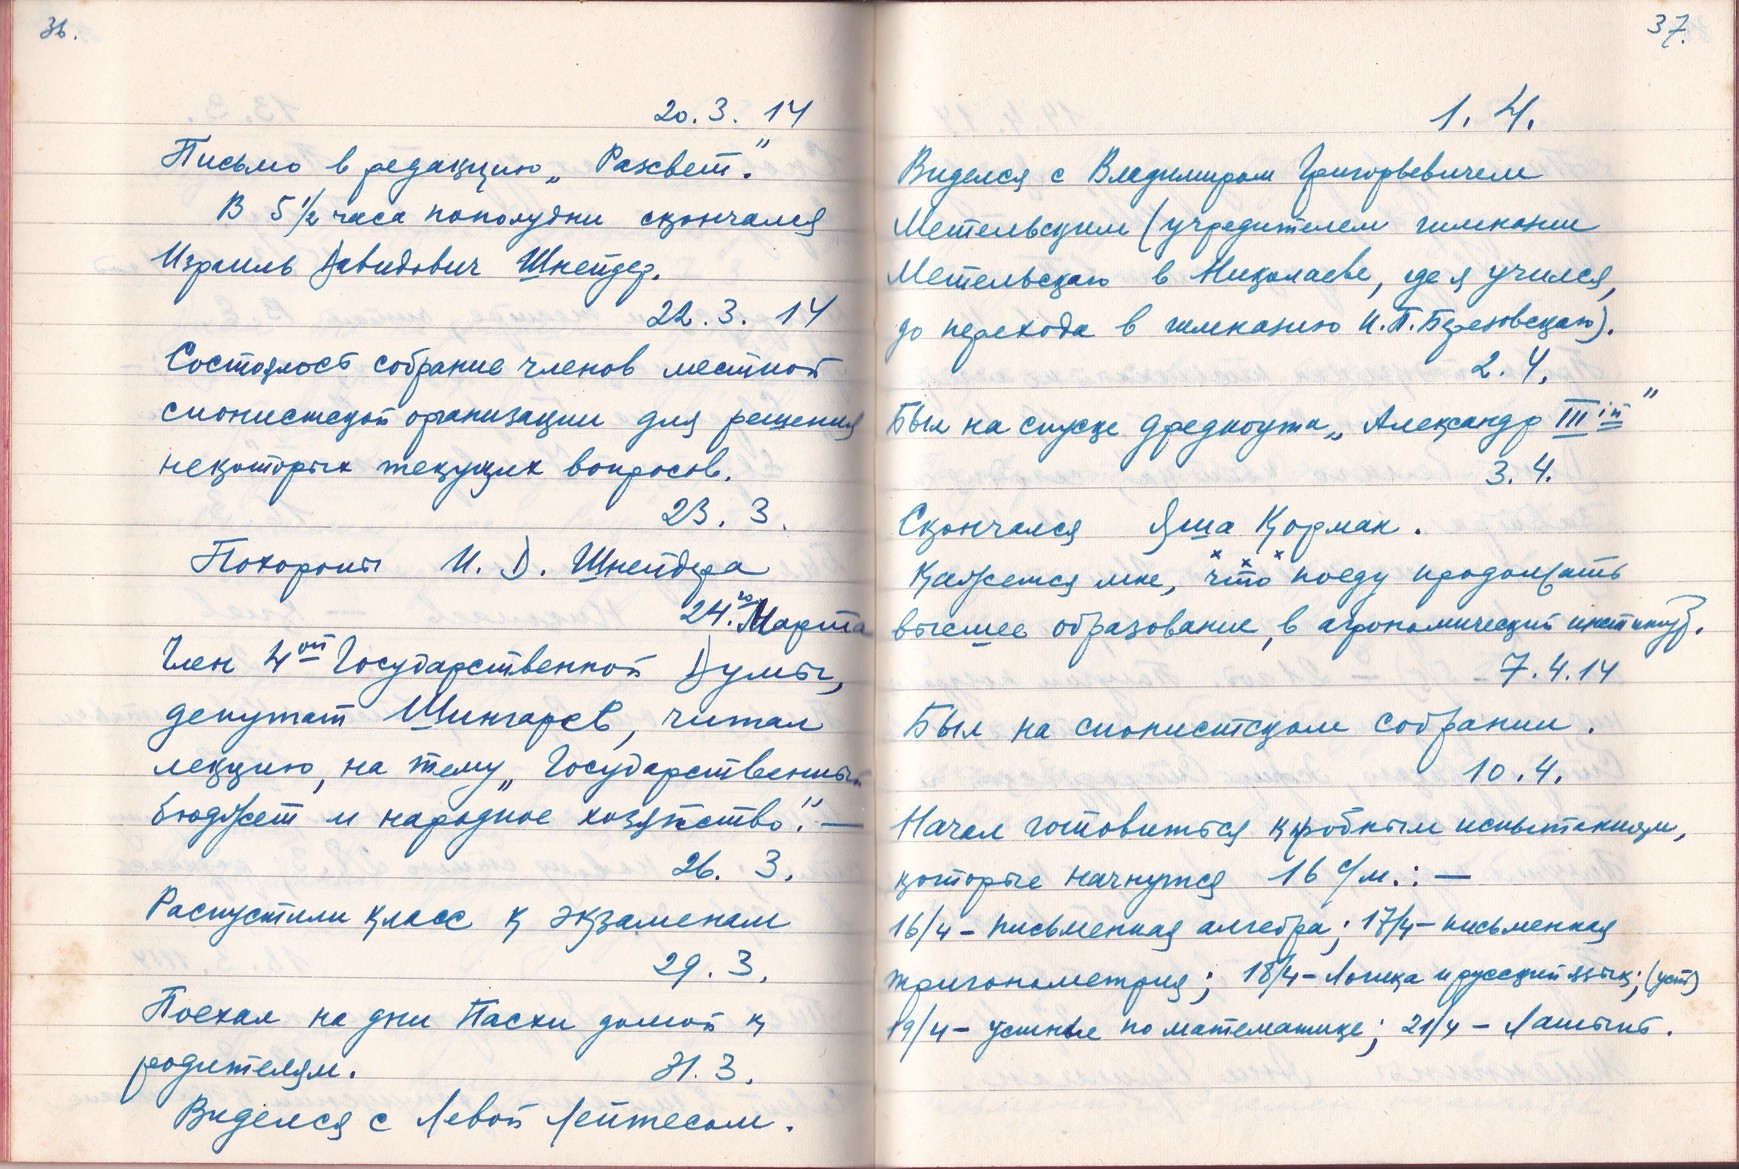 36.
20.3.14
Письмо в редакцию „Разсвет".
В 5 1/2 часа пополудни скончался
Израиль Давидович Шнейдер.
22.3.14
Состоялось собрание членов местной
сионистской организации для решения
некоторых текущих вопросов.
23.3.
Похороны И. Д. Шнейдера
24.го Марта
Член 4ой Государственной Думы,
депутат Шингарев, читал
лекцию, на тему „Государственный
бюджет и народное хозяйство". —
26.3.
Распустили класс к экзаменам
29.3.
Поехал на дни Пасхи домой к
родителям.
31.3.
Виделся с Левой Лейтесом.
37.
1.4.
Виделся с Владимиром Григорьевичем
Метельским (учредителем гимназии
Метельскаго в Николаеве, где я учился,
до перехода в гимназию И.П.Березовскаго).
2.4.
Был на спуске дредноута „Александр IIIiй"
3.4.
Скончался Яша Корман.
Кажется мне, что поеду продолжать
высшее образование, в агрономический институт.
7.4.14
Был на сионистском собрании.
10.4.
Начал готовиться к пробным испытаниям,
которые начнутся 16 с/м.: —
16/4 – письменная алгебра; 17/4 – письменная
тригонометрия; 18/4 – Логика и русский язык; (уст)
19/4 – устные по математике; 21/4 – Латынь.